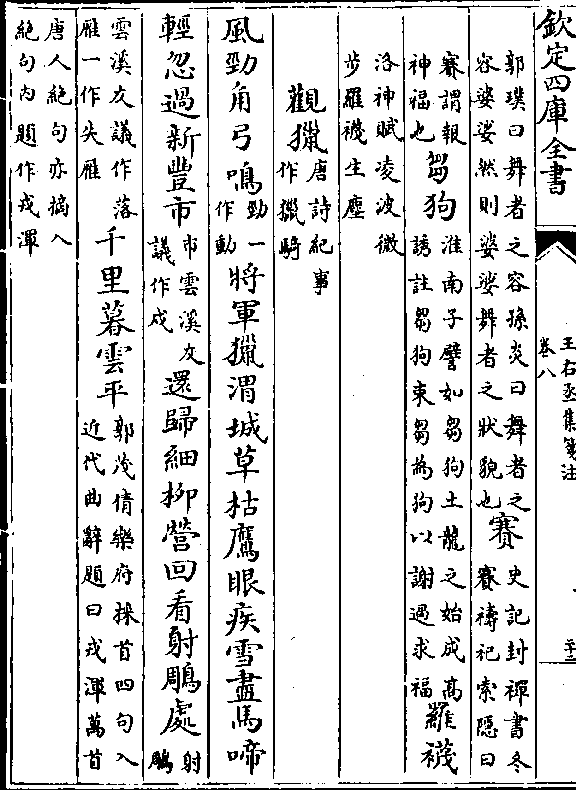 欽定四庫全書
王右丞集箋注
卷八
二十二
郭璞曰舞者之容孫炎曰舞者之
容婆娑然則婆娑舞者之狀貌也
賽
史記封禪書冬
賽禱祀索隱曰
賽謂報
神福也
芻狗
淮南子譬如芻狗土龍之始成高
誘註芻狗束芻為狗以謝過求福
羅襪
洛神賦凌波微
步羅襪生塵
觀獵
唐詩紀事
作獵騎
風勁角弓鳴
勁一
作動
將軍獵渭城草枯鷹眼疾雪盡馬啼
輕忽過新豐市
市雲溪友
議作戍
還歸細柳營回看射雕處
射
鵰
雲溪友議作落
雁一作失雁
千里暮雲平
郭茂倩樂府採首四句入
近代曲辭題曰戎渾萬首
唐人絕句亦摘入
絕句內題作戎渾